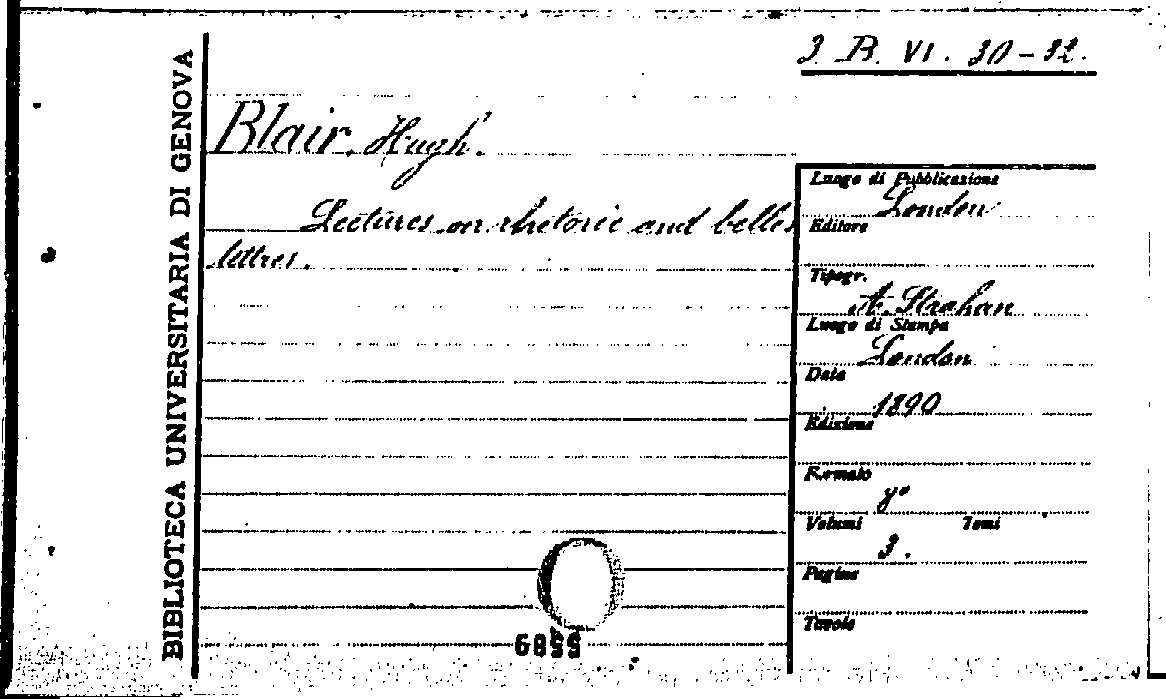 3. B. VI. 30-32.
BIBLIOTECA UNIVERSITARIA DI GENOVA
Blair, Hugh.
Lectures on rhetoric and belles
lettres.
Luogo di Pubblicazione
London
Editore
Tipogr.
A. Strahan
Luogo di Stampa
London
Data
1890
Edizione
Formato
Volumi Tomi
3.
Pagine
Tavole